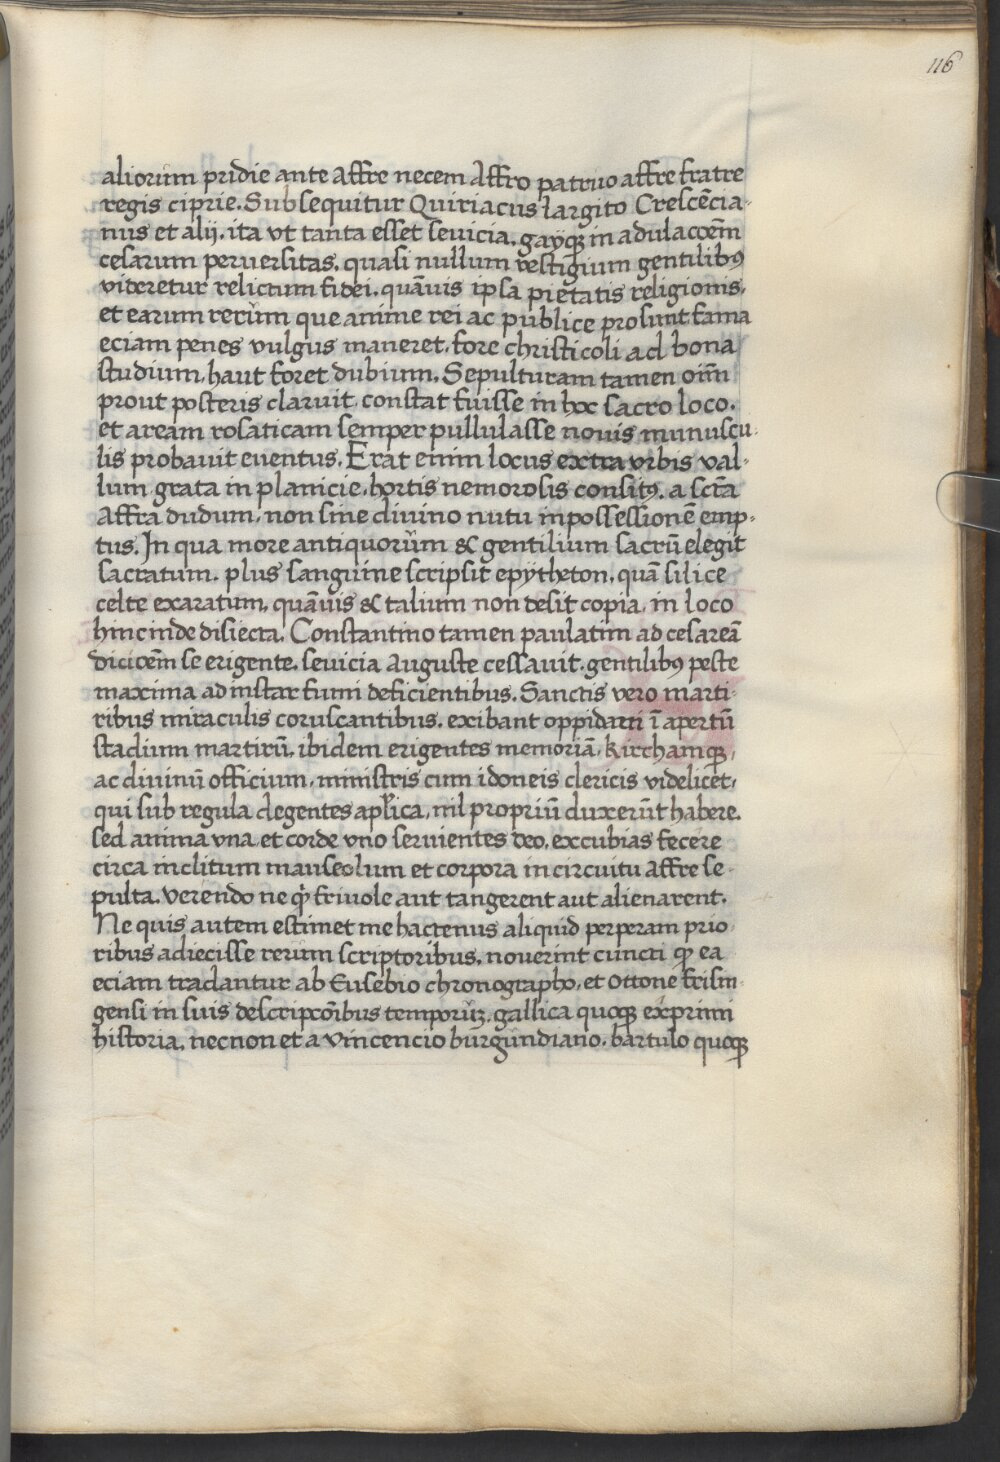 116
aliorum pridie ante affre necem Affro patruo affre fratre
regis ciprie. Subsequitur Quiriacus largito Crescēcia-
nus et alij. ita vt tanta esset seuicia. gayqꝫ in adulacōem
cesarum peruersitas. quasi nullum vestigium gentilibꝰ
videretur relictum fidei. quāuis ipsa pietatis religionis.
et earum rerum que anime rei ac publice prosunt fama
eciam penes vulgus maneret. fore christicoli ad bona
studium. haut foret dubium. Sepulturam tamen oīm
prout posteris claruit constat fuisse in hoc sacro loco.
et aream rosaticam semper pullulasse nouis munuscu-
lis probauit euentus. Erat enim locus extra vrbis val-
lum grata in planicie. hortis nemorosis consitꝰ. a sctā
Affra dudum. non sine diuino nutu in possessionē emp-
tus. In qua more antiquorum & gentilium sacrū elegit
sacratum. plus sanguine scripsit epytheton. quā silice
celte exaratum. quāuis & talium non desit copia. in loco
hinc inde disiecta. Constantino tamen paulatim ad cesareā
dicicōem se erigente. seuicia auguste cessauit. gentilibꝰ peste
maxima ad instar fumi deficientibus. Sanctis vero marti-
ribus miraculis coruscantibus. exibant oppidani ī apertū
stadium martirū. ibidem erigentes memoriā. kirchamqꝫ.
ac diuinū officium. ministris cum idoneis clericis videlicet.
qui sub regula degentes aplica. nil propriū duxerūt habere.
sed anima vna et corde vno seruientes deo. excubias fecere
circa inclitum mauseolum et corpora in circuitu affre se-
pulta. verendo ne qͥ friuole aut tangerent aut alienarent.
Ne quis autem estimet me hactenus aliquid perperam prio-
ribus adiecisse rerum scriptoribus. nouerint cuncti ꝙ ea
eciam tradantur ab Eusebio chronographo. et Ottone frisin-
gensi in suis descripcōibus temporūꝫ. gallica quoqꝫ exprimi
historia. necnon et a vincencio burgundiano. bartulo quoqꝫ